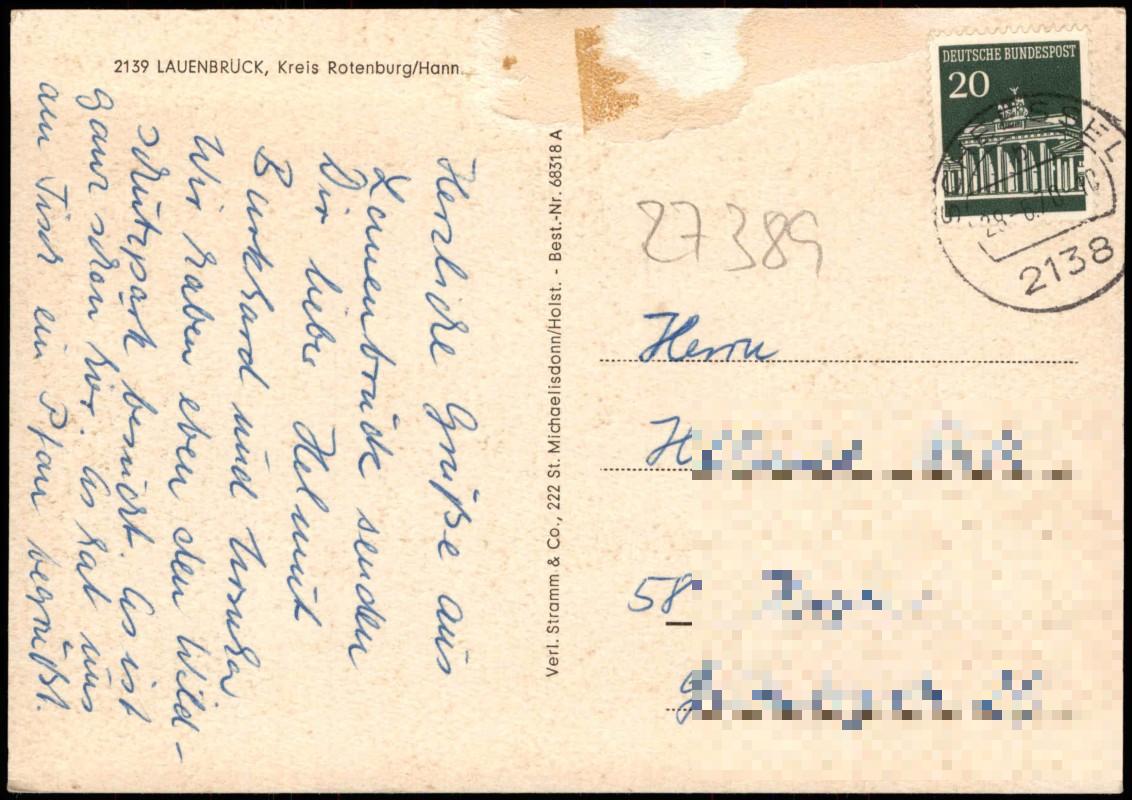 2139 LAUENBRÜCK, Kreis Rotenburg/Hann.
Herzliche Grüße aus
Lauenbrück senden
Dir lieber Helmut
Burkhard und Ursula
Wir haben eben den Wild-
schutzpark besucht. Es ist
ganz schön hier. Es hat uns
am Tisch ein Pfau begrüßt.
Verl. Stramm & Co., 222 St. Michaelisdonn/Holst. - Best.-Nr. 68318 A
DEUTSCHE BUNDESPOST
20
2138
27389
Herrn
H
58